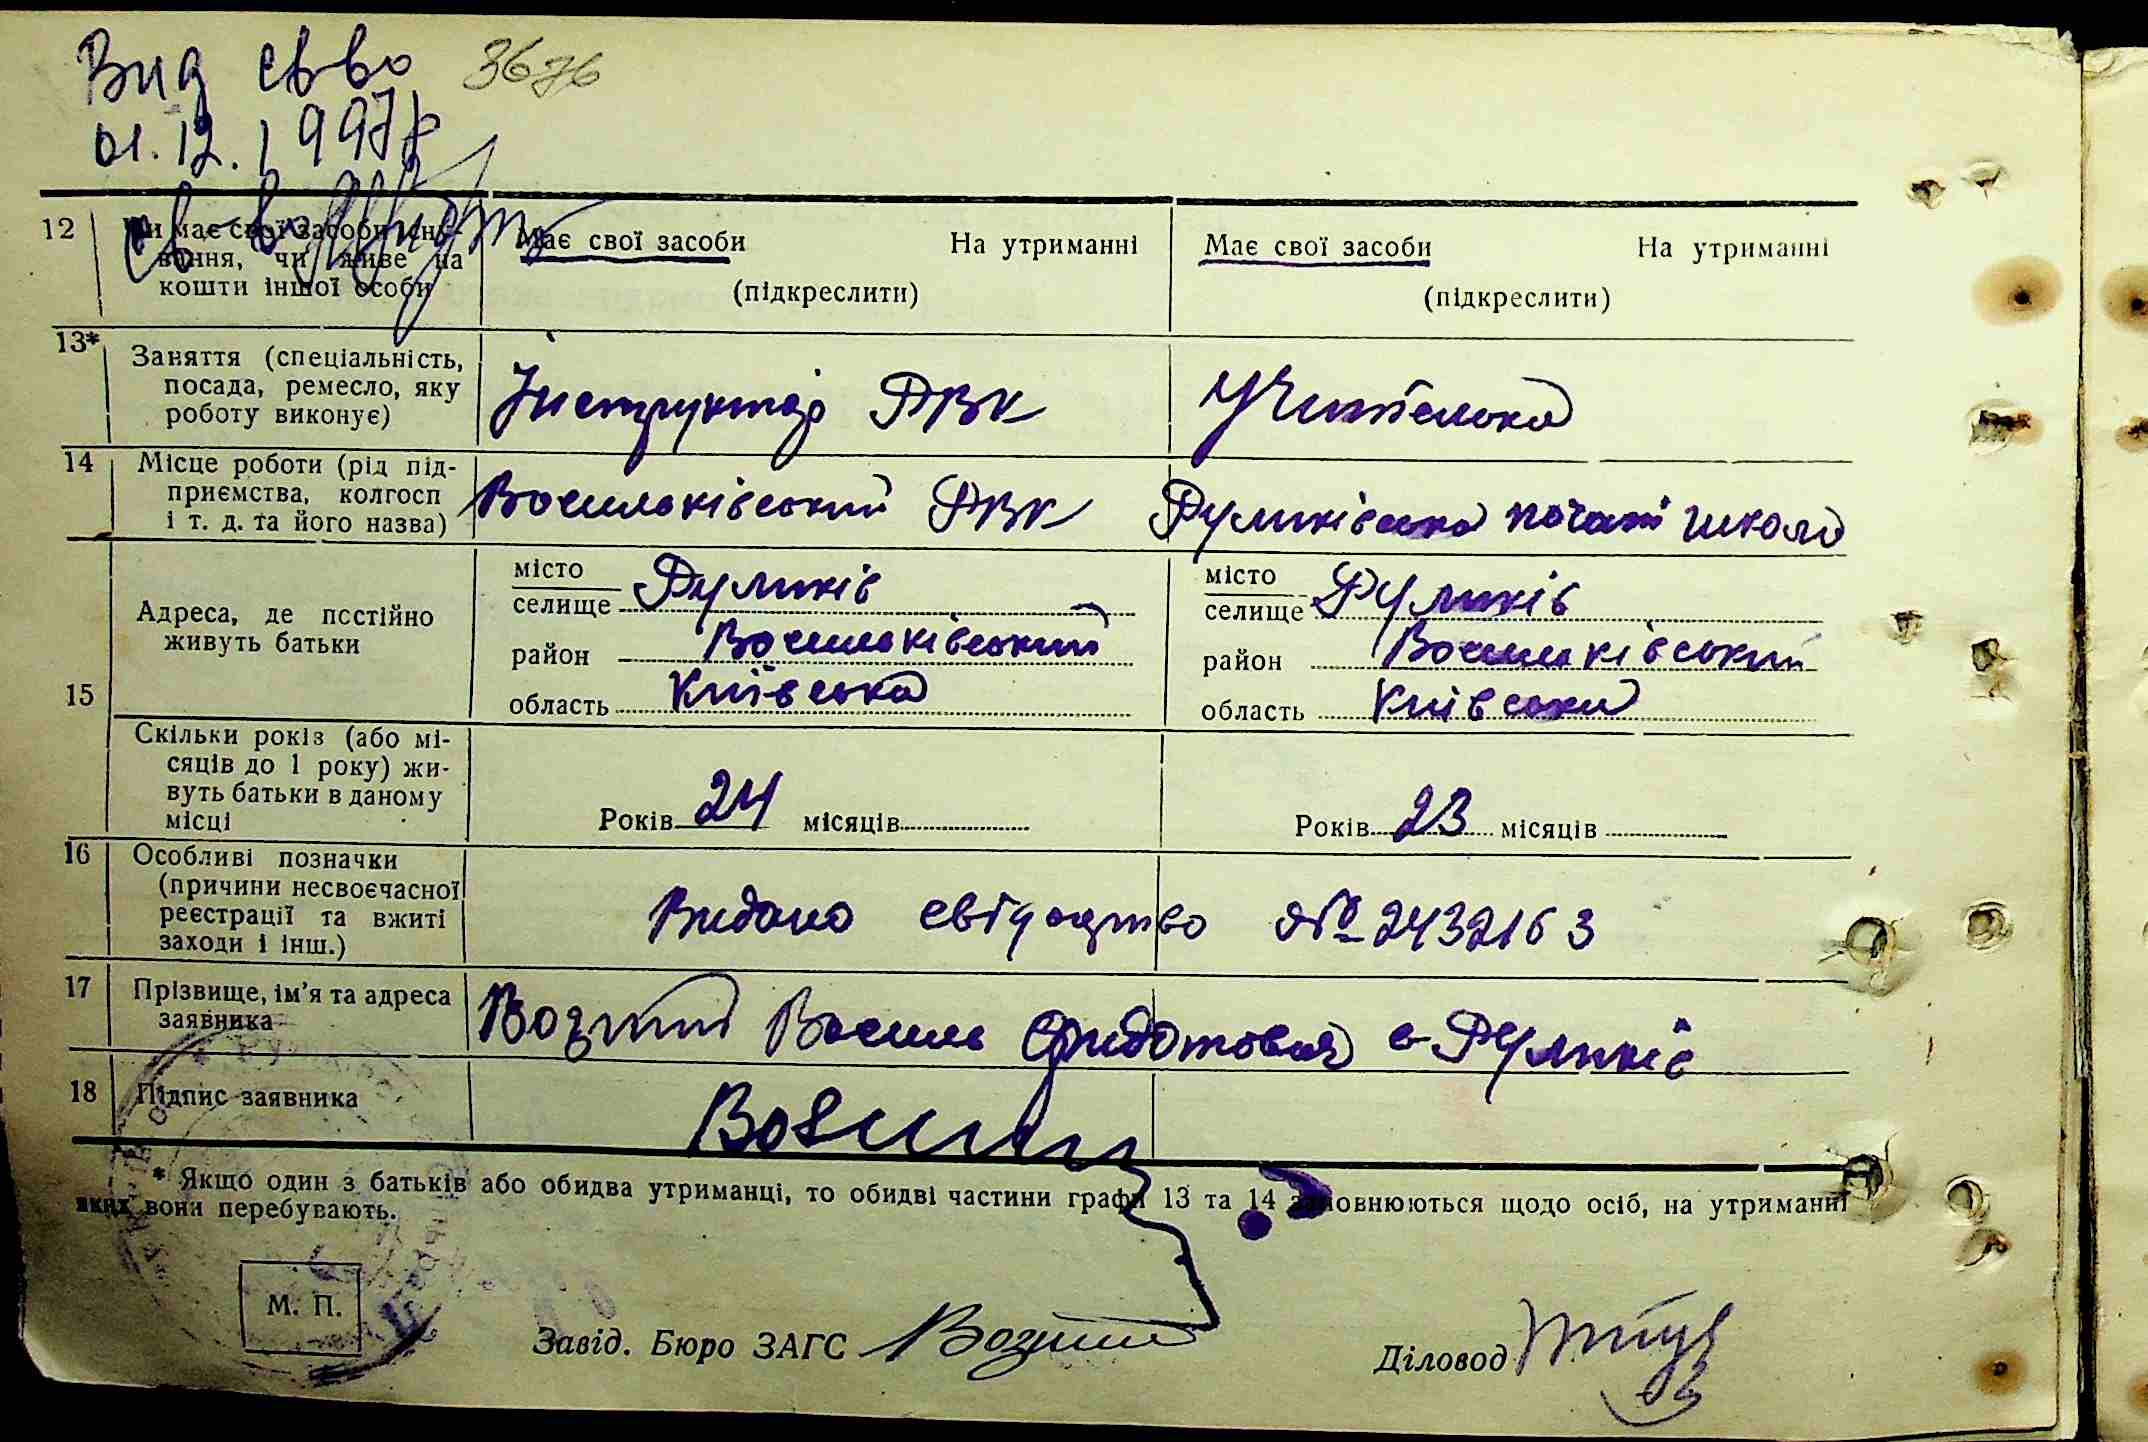 Вид св-во 3676
01.12.1997р
св-во
12 Чи має свої засоби існу-
вання, чи живе на
кошти іншої особи
Має свої засоби На утриманні
(підкреслити)
Має свої засоби На утриманні
(підкреслити)
13* Заняття (спеціальність,
посада, ремесло, яку
роботу виконує)
Інструктор РВК
Учителька
14 Місце роботи (рід під-
приємства, колгосп
і т. д. та його назва)
Васильківський РВК
Руликівська почат школа
15 Адреса, де постійно
живуть батьки
місто
селище Руликів
район Васильківський
область Київська
місто
селище Руликів
район Васильківський
область Київська
Скільки років (або мі-
сяців до 1 року) жи-
вуть батьки в даному
місці
Років 24 місяців
Років 23 місяців
16 Особливі позначки
(причини несвоєчасної
реєстрації та вжиті
заходи і інш.)
Видано свідоцтво № 2432163
17 Прізвище, ім'я та адреса
заявника
Возний Василь Фидотович с Руликів
18 Підпис заявника
* Якщо один з батьків або обидва утриманці, то обидві частини графи 13 та 14 заповнюються щодо осіб, на утриманні
яких вони перебувають.
М. П.
Завід. Бюро ЗАГС Возний
Діловод